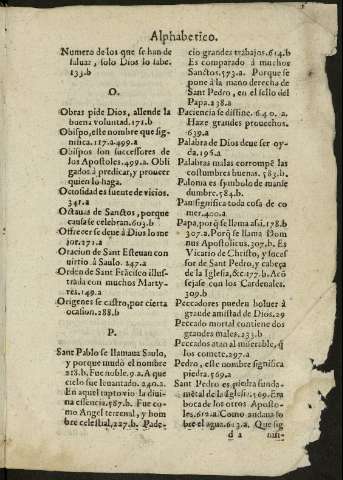 Alphabetico.
Numero de los que se han de
saluar, solo Dios lo sabe.
133.b
O.
Obras pide Dios, allende la
buena voluntad. 171.b
Obispo, este nombre que sig-
nifica. 117.a. 499.a
Obispos son successores de
los Apostoles. 499.a. Obli
gados à predicar, y proueer
quien lo haga.
Ociosidad es fuente de vicios.
341.a
Octauas de Sanctos, porque
causa se celebran. 603.b
Offrecer se deue à Dios lo me
jor. 171.a
Oracion de Sant Esteuan con
uirtio à Saulo. 247.a
Orden de Sant Frãcisco illus-
trada con muchos Marty-
res. 149.a
Origenes se castro, por cierta
ocasion. 288.b
P.
Sant Pablo se llamaua Saulo,
y porque mudò el nombre
218.b. Fue noble. 9.a. A que
cielo fue leuantado. 240.a.
En aquel raptovio la diui-
na essencia. 587.b. Fue co-
mo Angel terrenal, y hom
bre celestial, 227.b. Pade-
cio grandes trabajos. 614.b
Es comparado à muchos
Sanctos. 573.a. Porque se
pone à la mano derecha de
Sant Pedro, en el sello del
Papa. 238.a
Paciencia se diffine. 640. a.
Haze grandes prouechos.
639.a
Palabra de Dios deue ser oy-
da. 196.a
Palabras malas corrompẽ las
costumbres buenas. 583.b.
Paloma es symbolo de manse
dumbre. 584.b.
Pan significa toda cosa de co
mer. 400.a
Papa, porq̃ se llama assi. 178.b
307.a. Porq̃ se llama Dom
nus Apostolicus. 307.b. Es
Vicario de Christo, y sucef
sor de Sant Pedro, y cabeça
de la Iglesia, &c. 177.b. Acõ
sejase con los Cardenales.
309.b
Peccadores pueden boluer à
grande amistad de Dios. 29
Peccado mortal contiene dos
grandes males. 233.b
Peccados atan al miserable, q̃
los comete. 297.a
Pedro, este nombre significa
piedra. 569.a
Sant Pedro es piedra funda-
mẽtal de la Iglesia. 569. Era
boca de los otros Aposto-
les. 612.a. Como andaua so
bre el agua. 613.a. Que sig
d 2